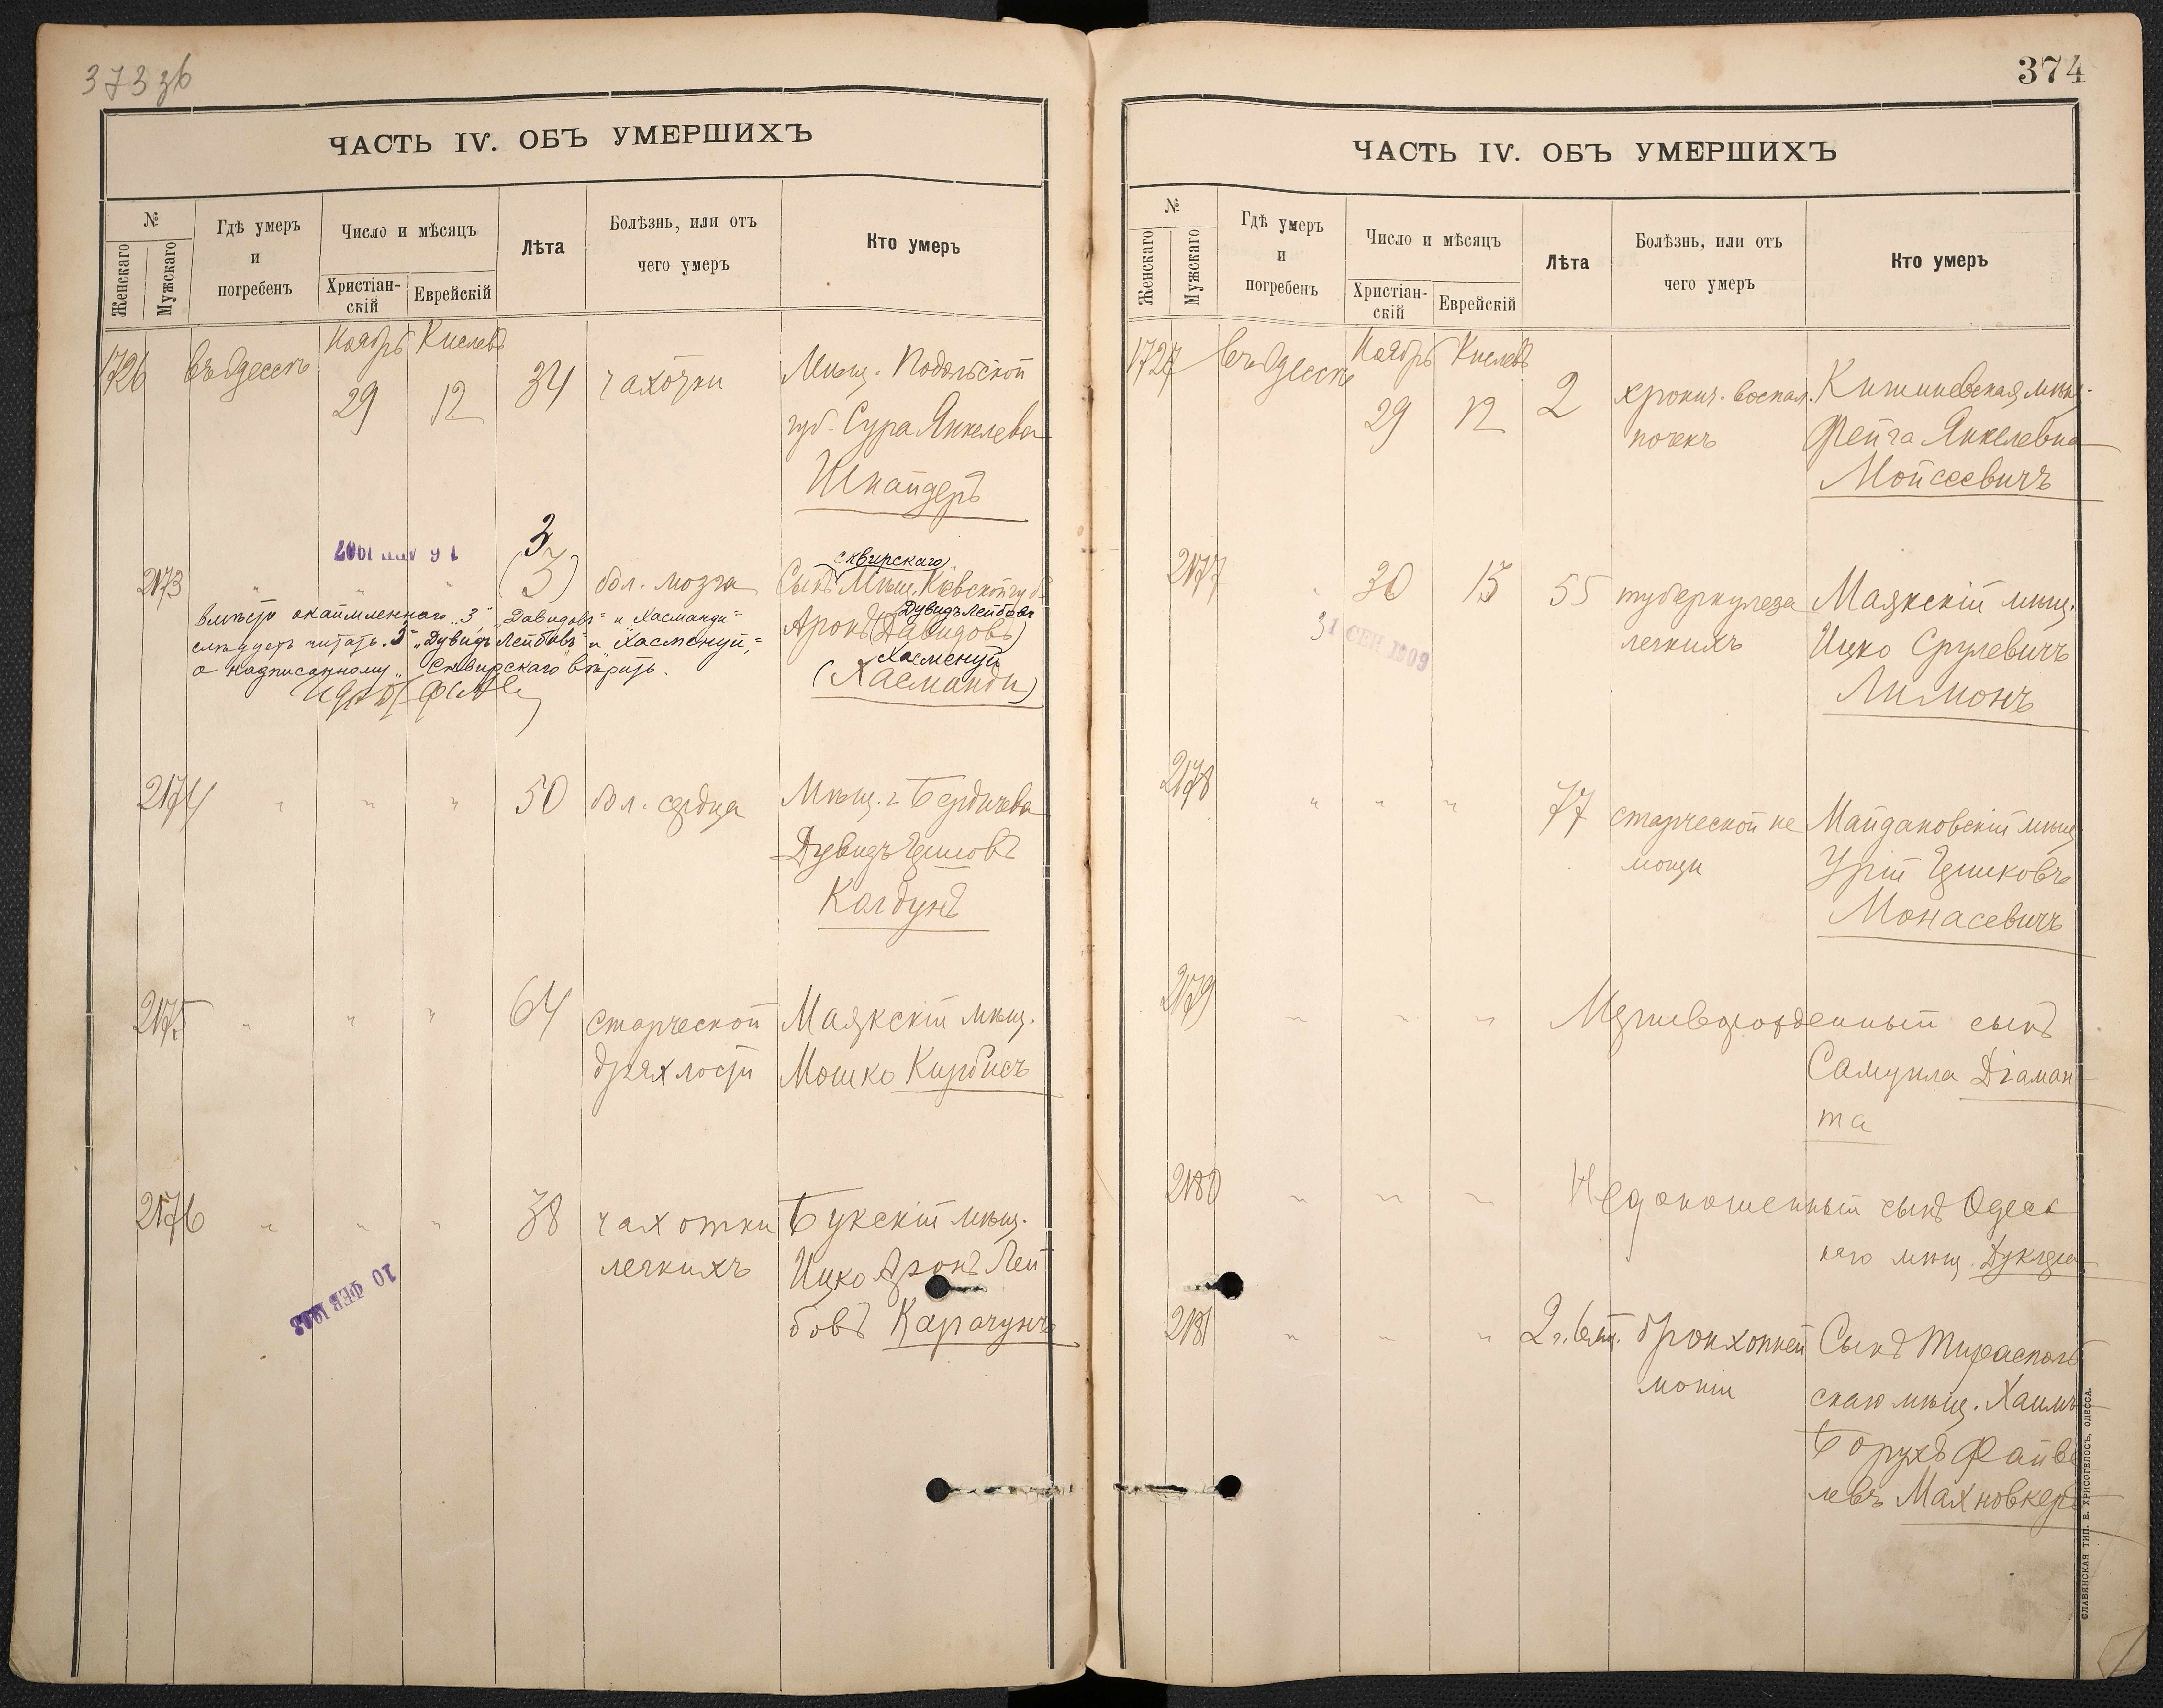 373 зв
ЧАСТЬ IV. ОБЪ УМЕРШИХЪ
№
Женскаго
Мужскаго
Гдѣ умеръ
и
погребенъ
Число и мѣсяцъ
Христіан-
скій
Еврейскій
Лѣта
Болѣзнь, или отъ
чего умеръ
Кто умеръ
Ноябрь Кислевъ
1726 въ Одессѣ 29 12 34 чахотки Мѣщ. Подольской
губ. Сура Янкелева
Шнайдеръ
3
сквирскаго
2173 " " " (3) бол. мозга Сынъ Мѣщ. Кіевской губ.
Дувидъ Лейбовъ
Аронъ (Давидовъ)
Хасменуй
(Хасманди)
вмѣсто окаймленнаго "3", "Давидовъ" и "Хасманди"
слѣдуетъ читать "3" "Дувидъ Лейбовъ" и "Хасменуй",
а надписанному "Сквирскаго" вѣрить.
2174 " " " 50 бол. сердца Мѣщ. г. Бердичева
Дувидъ
Колдунъ
2175 " " " 64 старческой Маякскій мѣщ.
дряхлости Мошко Кирбисъ
2176 " " " 38 чахотки Букскій мѣщ.
легкихъ Ицко Аронъ Лей
бовъ Карачунъ
10 ФЕВ 1908
374
ЧАСТЬ IV. ОБЪ УМЕРШИХЪ
№
Женскаго
Мужскаго
Гдѣ умеръ
и
погребенъ
Число и мѣсяцъ
Христіан-
скій
Еврейскій
Лѣта
Болѣзнь, или отъ
чего умеръ
Кто умеръ
Ноябрь Кислевъ
1727 въ Одессѣ 29 12 2 хронич. воспал. Кишиневская мѣщ.
почекъ Фейга Янкелевна
Мойсеевичъ
2177 " 30 13 55 туберкулеза Маякскій мѣщ.
легкихъ Ицко Срулевичъ
Лимонъ
31 СЕН 1909
2178 " " " 77 старческой не Майдановскій мѣщ.
мощи Урій Ицковъ
Монасевичъ
2179 " " " Мертворожденный сынъ
Самуила Діаман
та
2180 " " " Недоношенный сынъ Одесс
каго мѣщ.
2181 " " " 2 г. 6 м. бронхопней Сынъ Тирасполь
моніи скаго мѣщ. Хаимъ
Борухъ Файве
левъ Махновкеръ
СЛАВЯНСКАЯ ТИП. Е. ХРИСОГЕЛОСЪ, ОДЕССА.